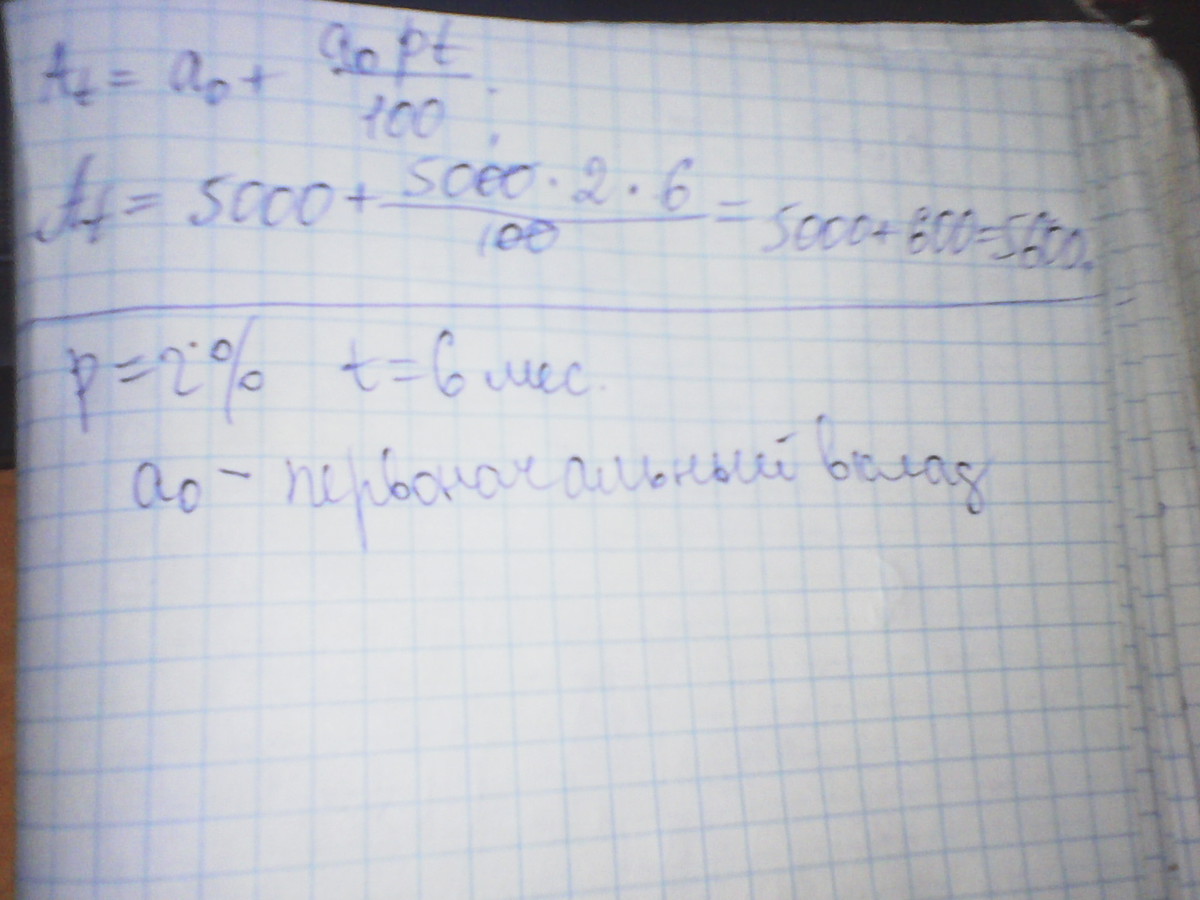 A_t = a_0 + \frac{a_0 pt}{100};
A_t = 5000 + \frac{5000 · 2 · 6}{100} = 5000+600=5600.
p = 2% t = 6 мес.
a_0 – первоначальный вклад